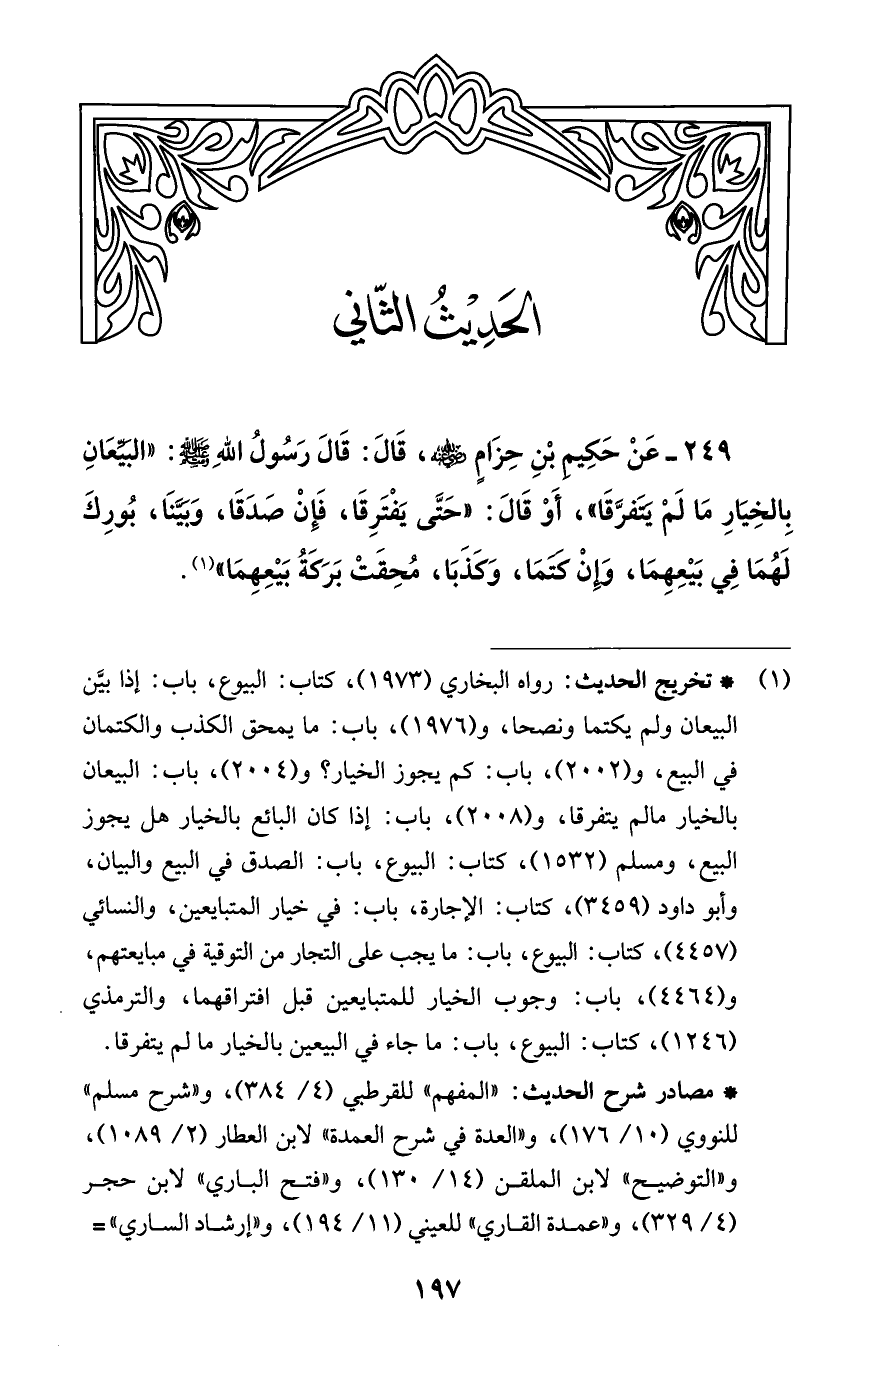 الحَدِيْثُ الثَّاني
٢٤٩ ـ عَنْ حَكِيمِ بْنِ حِزَامٍ رضي الله عنه، قَالَ: قَالَ رَسُولُ اللهِ ﷺ: «البَيِّعَانِ
بِالخِيَارِ مَا لَمْ يَتَفرَّقَا»، أَوْ قَالَ: «حَتَّى يَفْتَرِقَا، فَإِنْ صَدَقَا، وَبَيَّنَا، بُورِكَ
لَهُمَا فِي بَيْعِهِمَا، وَإِنْ كَتَمَا، وَكَذَبَا، مُحِقَتْ بَرَكَةُ بَيْعِهِمَا»(١).
(١) * تخريج الحديث: رواه البخاري (١٩٧٣)، كتاب: البيوع، باب: إذا بيَّن
البيعان ولم يكتما ونصحا، و(١٩٧٦)، باب: ما يمحق الكذب والكتمان
في البيع، و(٢٠٠٢)، باب: كم يجوز الخيار؟ و(٢٠٠٤)، باب: البيعان
بالخيار مالم يتفرقا، و(٢٠٠٨)، باب: إذا كان البائع بالخيار هل يجوز
البيع، ومسلم (١٥٣٢)، كتاب: البيوع، باب: الصدق في البيع والبيان،
وأبو داود (٣٤٥٩)، كتاب: الإجارة، باب: في خيار المتبايعين، والنسائي
(٤٤٥٧)، كتاب: البيوع، باب: ما يجب على التجار من التوقية في مبايعتهم،
و(٤٤٦٤)، باب: وجوب الخيار للمتبايعين قبل افتراقهما، والترمذي
(١٢٤٦)، كتاب: البيوع، باب: ما جاء في البيعين بالخيار ما لم يتفرقا.
* مصادر شرح الحديث: «المفهم» للقرطبي (٤/ ٣٨٤)، و«شرح مسلم»
للنووي (١٠/ ١٧٦)، و«العدة في شرح العمدة» لابن العطار (٢/ ١٠٨٩)،
و«التوضيح» لابن الملقن (١٤/ ١٣٠)، و«فتح الباري» لابن حجر
(٤/ ٣٢٩)، و«عمدة القاري» للعيني (١١/ ١٩٤)، و«إرشاد الساري»=
١٩٧